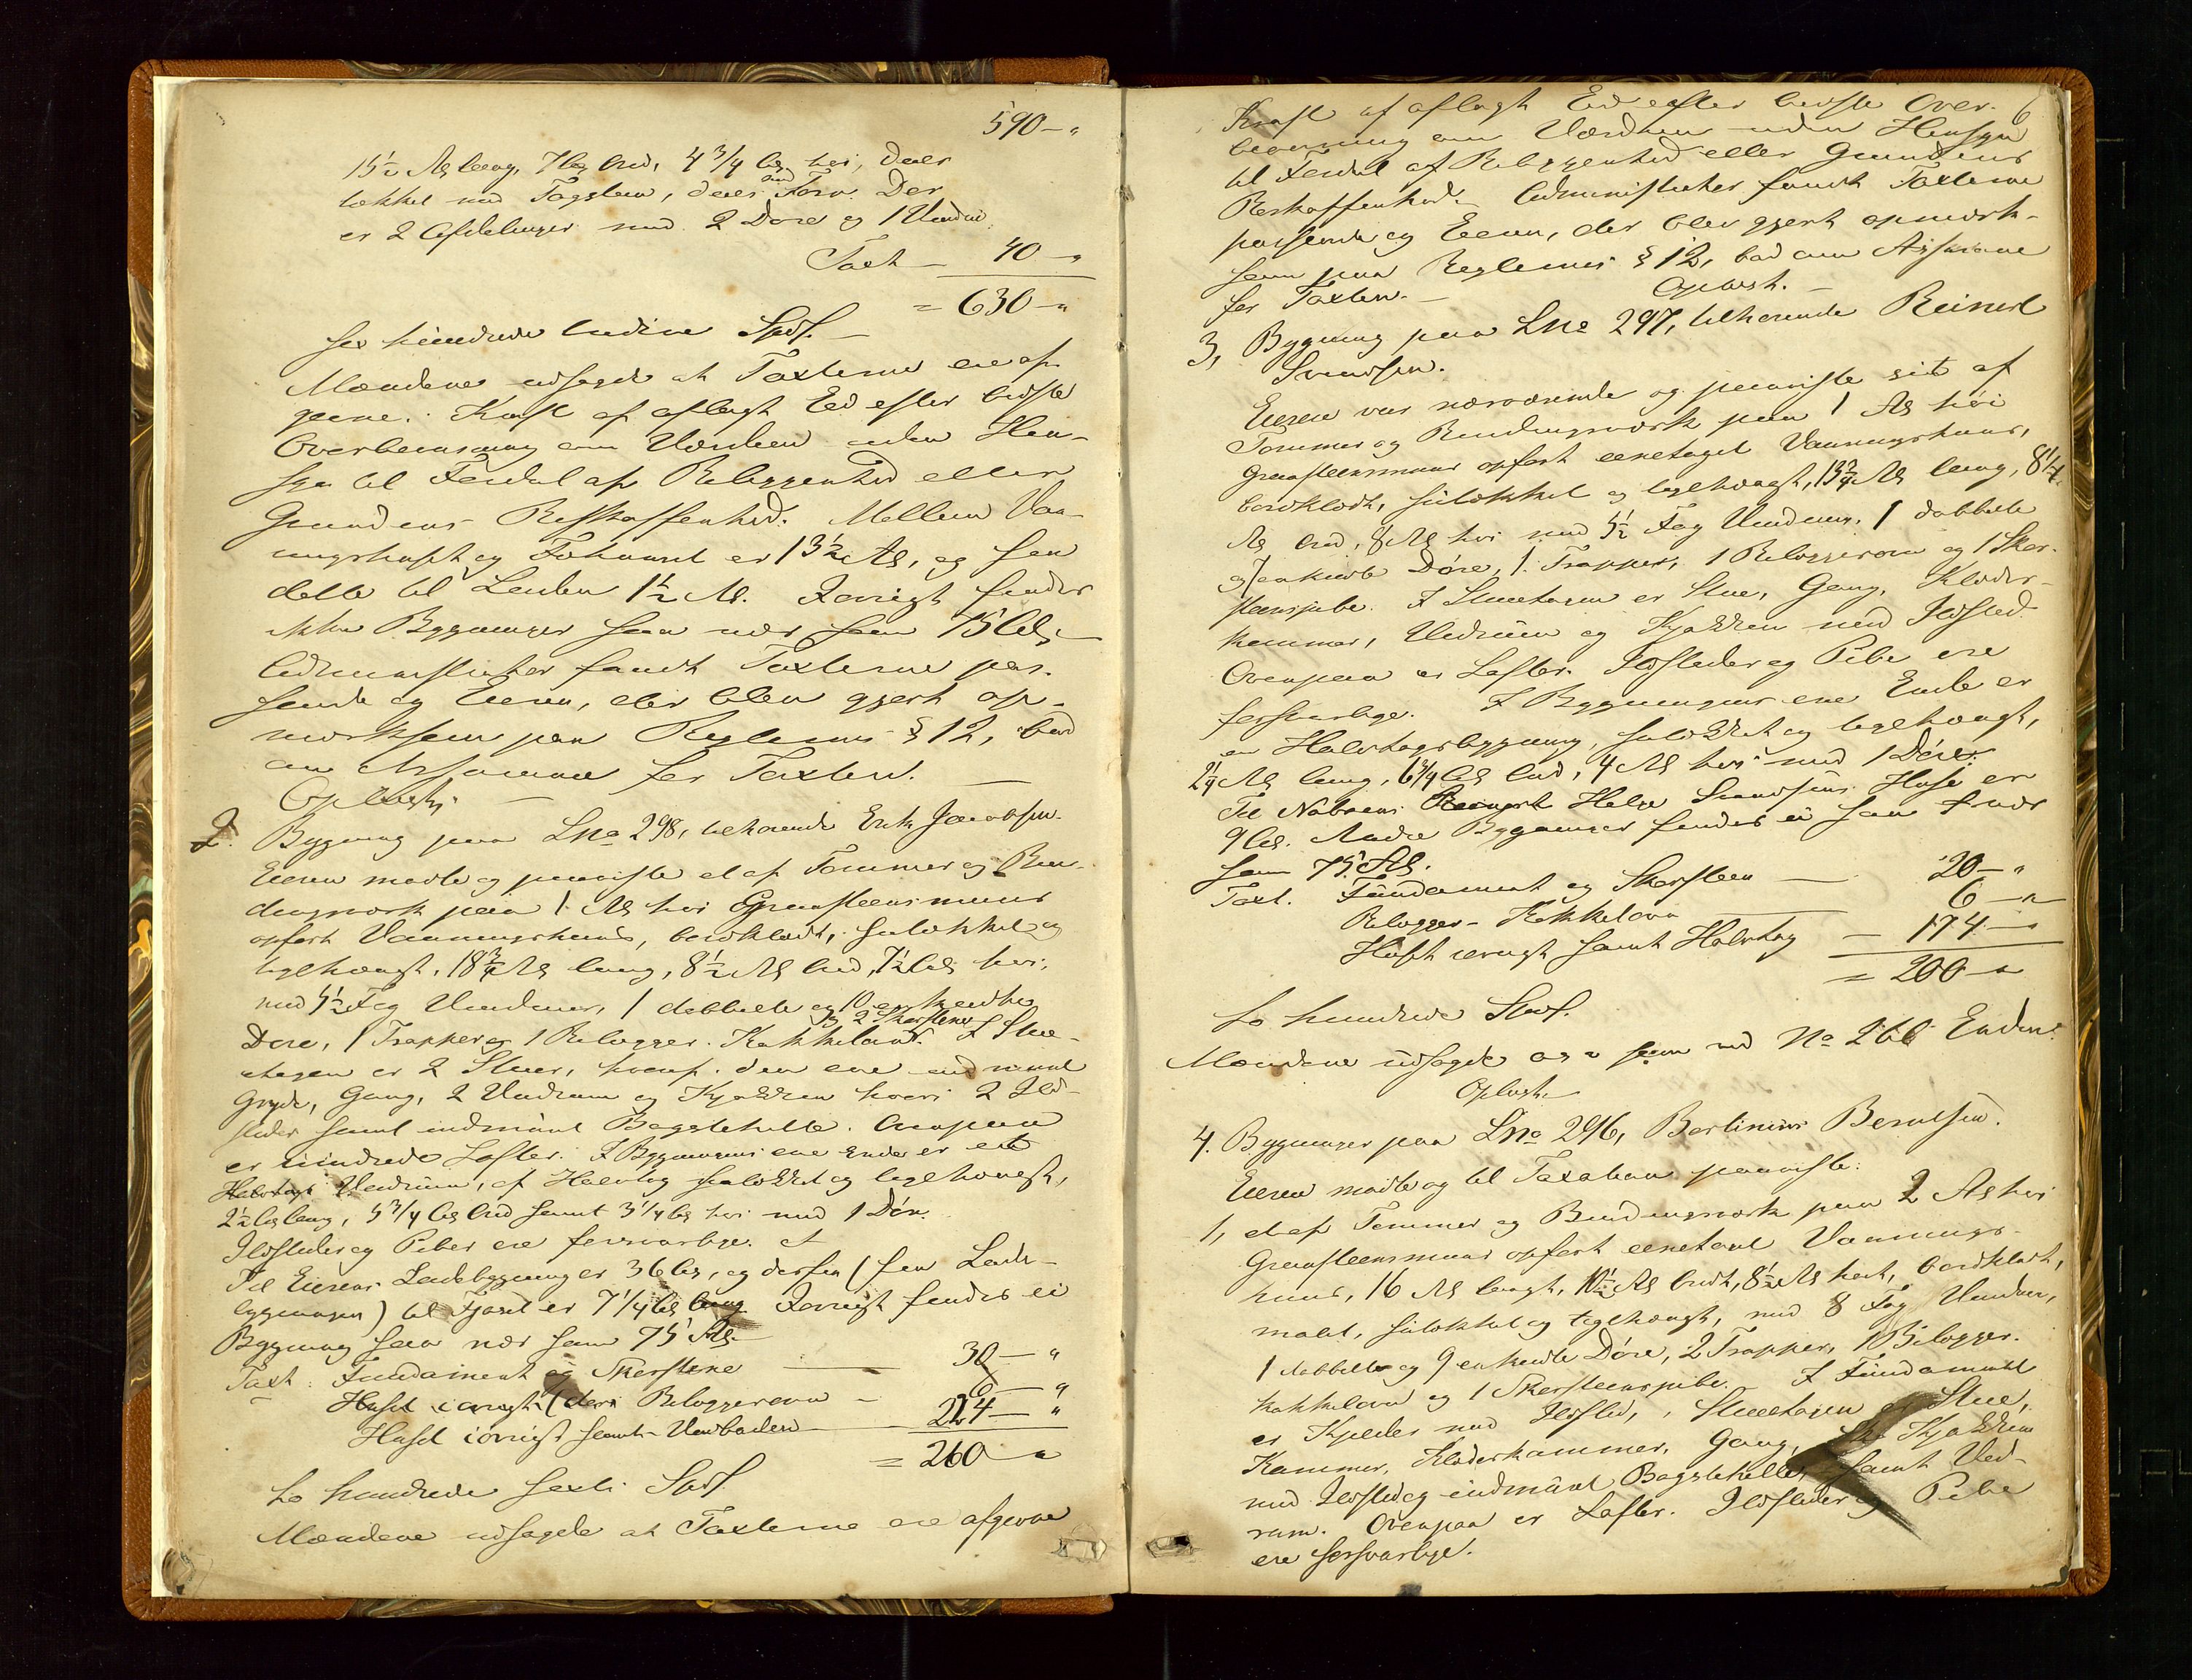 590 — "
15½ Al lang, 7 Al bred, 4¾ Al høi, deels
tækket med Tagsteen, deels med Torv. Der
er 2 Afdelinger med 2 Døre og 1 Vindue
Taxt — 40 — "
= 630 — "
Sex hundrede tredive Spd. —
Mændene udsagde at Taxterne ere af-
givne i Kraft af aflagt Eed efter bedste
Overbeviisning om Værdien uden Hen-
syn til Fordel af Beliggenhed eller
Grundens Beskaffenhed. Mellem Vaa-
ningshuset og Fæhuset er 13½ Al, og fra
dette til Laden 1½ Al. Forøvrigt findes
ikke Bygninger saa nær som 75 Al. —
Administrator fandt Taxterne pas-
sende og Eieren, der blev gjort op-
mærksom paa Reglernes § 12, bad
om Assurance for Taxten. —
Oplæst. —
2. Bygning paa LNo 298, tilhørende Erik Jacobsen.
Eieren mødte og paaviste et af Tømmer og Bin-
dingsværk paa 1 Al høi Graasteensmuur
opført Vaaningshuus, bordklædt, sutækket og
teglhængt, 18¾ Al lang, 8½ Al bred, 7½ Al høi,
med 5½ Fag Vinduer, 1 dobbelte og 10 enkelte
Døre, 1 Trappe og 1 Bilægger-Kakkelovn og 2 Skorstene. I Stue-
etagen er 2 Stuer, hvoraf den ene med muret
Gryde, Gang, 2 Vedrum og Kjøkken hvori 2 Ild-
steder samt indmuret Bagstehelle. Ovenpaa
er indrede Lofter. I Bygningens ene Ende er et
Halvtags Vedruum, af Halvtag sutækket og teglhængt,
2½ Al lang, 5¾ Al bred samt 3¼ Al høi med 1 Dør.
Ildsteder og Piber ere forsvarlige.
Til Eierens Ladebygning er 36 Al, og derfra (fra Lade-
bygningen) til Fjøset er 7¼ Al lang. Forøvrigt findes ei
Bygning saa nær som 75 Al.
Taxt: Fundament og Skorstene — 30 — "
Huset iøvrigt (deri Bilæggerovn — 6 — "
Huset iøvrigt samt Vedboden — 224 — "
= 260 — "
to hundrede sexti Spd.
Mændene udsagde at Taxterne ere afgivne
6
Kraft af aflagt Eed efter bedste Over-
beviisning om Værdien uden Hensyn
til Fordel af Beliggenhed eller Grundens
Beskaffenhed. Administrator fandt Taxterne
passende og Eieren, der blev gjort opmærk-
som paa Reglernes § 12, bad om Assurance
for Taxten. — Oplæst. —
3, Bygning paa LNo 297, tilhørende Reinert
Svendsen.
Eieren var nærværende og paaviste sit af
Tømmer og Bindingsværk paa 1 Al høi
Graasteensmuur opført eenetages Vaaningshuus,
bordklædt, sutækket og teglhængt, 13¾ Al lang, 8¼
Al bred, 8 Al høi med 5½ Fag Vinduer, 1 dobbelte
og 7 enkelte Døre, 1 Trappe, 1 Bilæggerovn og 1 Skor-
steenspibe. I Stueetagen er Stue, Gang, Klæder-
kammer, Vedruum og Kjøkken med Ildsted.
Ovenpaa er Lofter. Ildsteder og Pibe ere
forsvarlige. I Bygningens ene Ende er
en Halvtagsbygning, sutækket og teglhængt,
2¼ Al lang, 6¾ Al bred, 4 Al høi med 1 Dør.
Til Naboens Helge Svendsens Huse er
9 Al. Andre Bygninger findes ei saa nær
som 75 Al.
Taxt. Fundament og Skorsteen — 20 — "
Bilægger-Kakkelovn — 6 — "
Huset iøvrigt samt Halvtag — 174 — "
= 200 — "
to hundrede Spd.
Mændene udsagde osv som ved No 266 Enden.
Oplæst. —
4. Bygninger paa LNo 296, Bertinius Berntsen.
Eieren mødte og til Taxation paaviste:
1, et af Tømmer og Bindingsværk paa 2 Al høi
Graasteensmuur opført eenetages Vaanings-
huus, 16 Al langt, 10½ Al bredt, 8½ Al høit, bordklædt,
malet, sutækket og teglhængt, med 8 Fag Vinduer,
1 dobbelte og 9 enkelte Døre, 2 Trapper, 1 Bilægger-
kakkelovn og 1 Skorsteenspibe. I Fundamentet
er Kjelder med Ildsted, i Stueetagen er Stue,
Kammer, Klæderkammer, Gang, Kjøkken
med Ildsted og indmuret Bagstehelle, samt Ved-
rum. Ovenpaa er Lofter. Ildsteder og Pibe
ere forsvarlige.